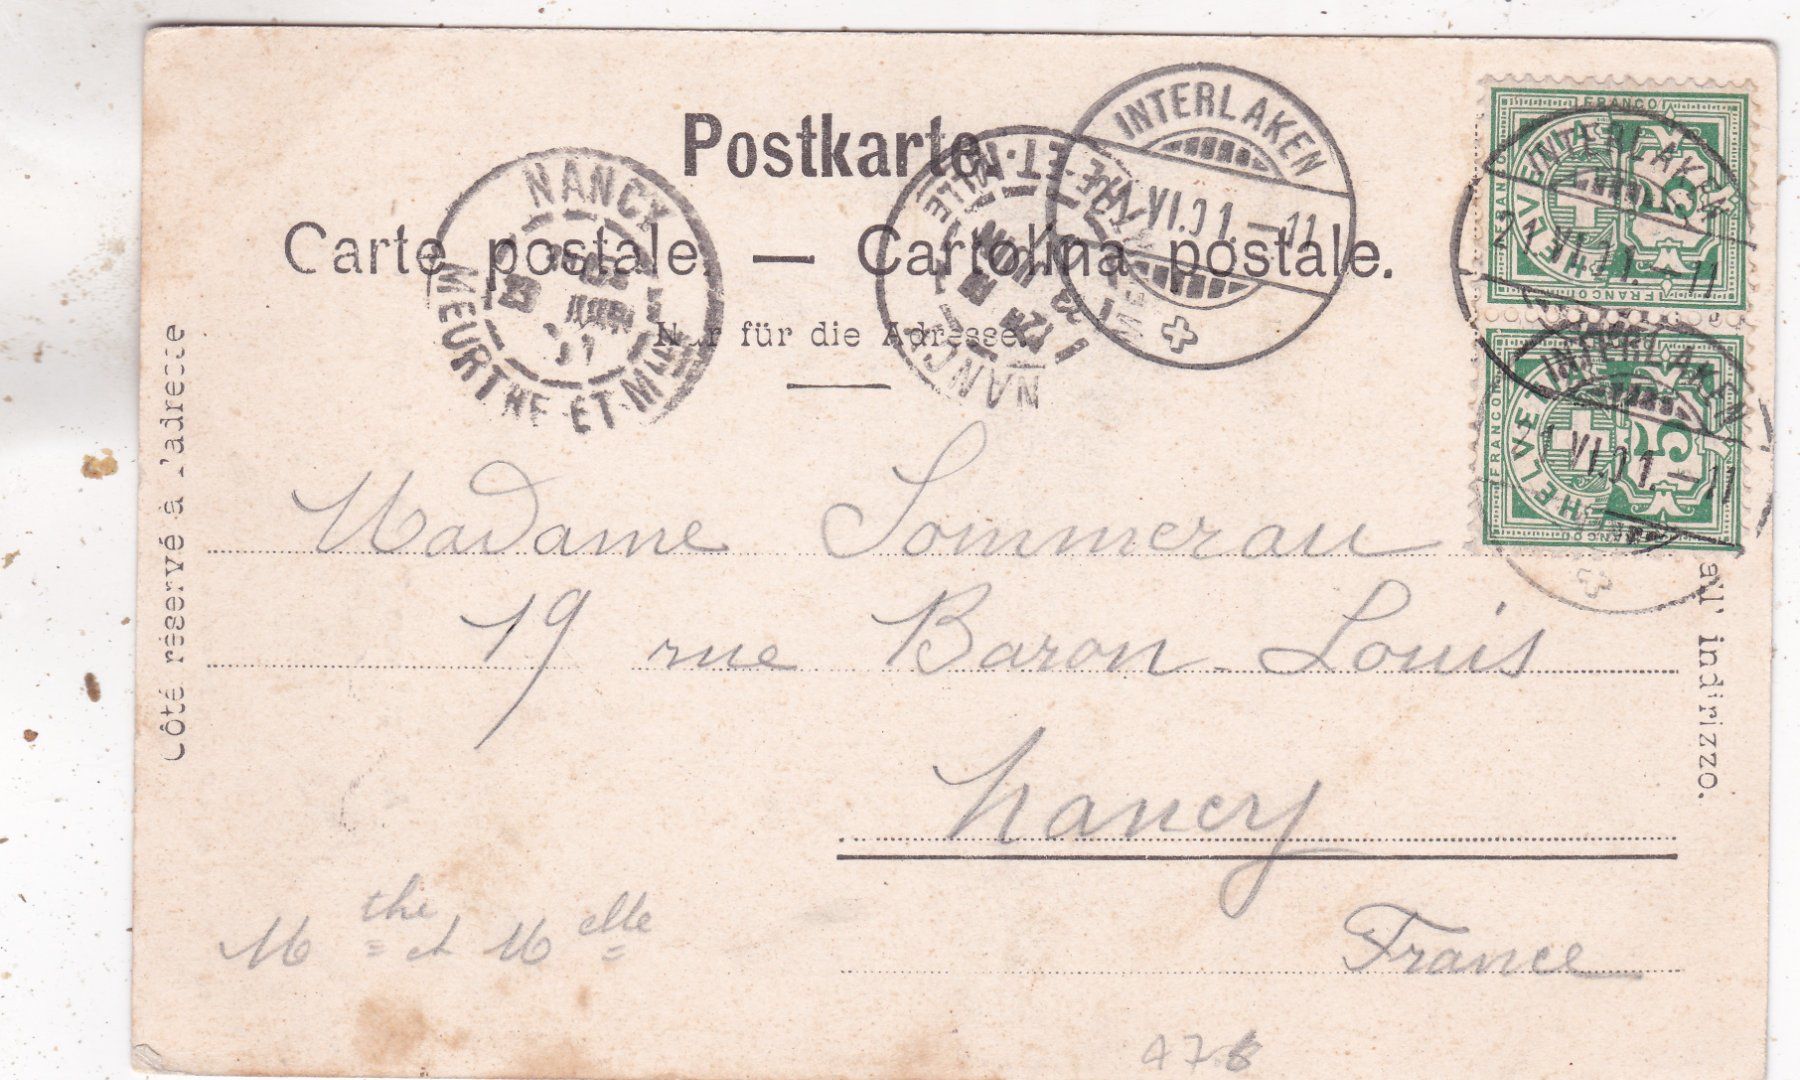 Postkarte.
Carte postale. — Cartolina postale.
Nur für die Adresse.
Côté réservé à l'adresse
all' indirizzo.
NANCY
MEURTHE ET M
JUIN
NANCY
INTERLAKEN
VI.01.-11
FRANCO
HELVETIA
5
INTERLAKEN
VI.01.-11
FRANCO
HELVETIA
5
INTERLAKEN
1 VI.01.-11
Madame Sommerau
19 rue Baron Louis
Nancy
France
M the et M elle